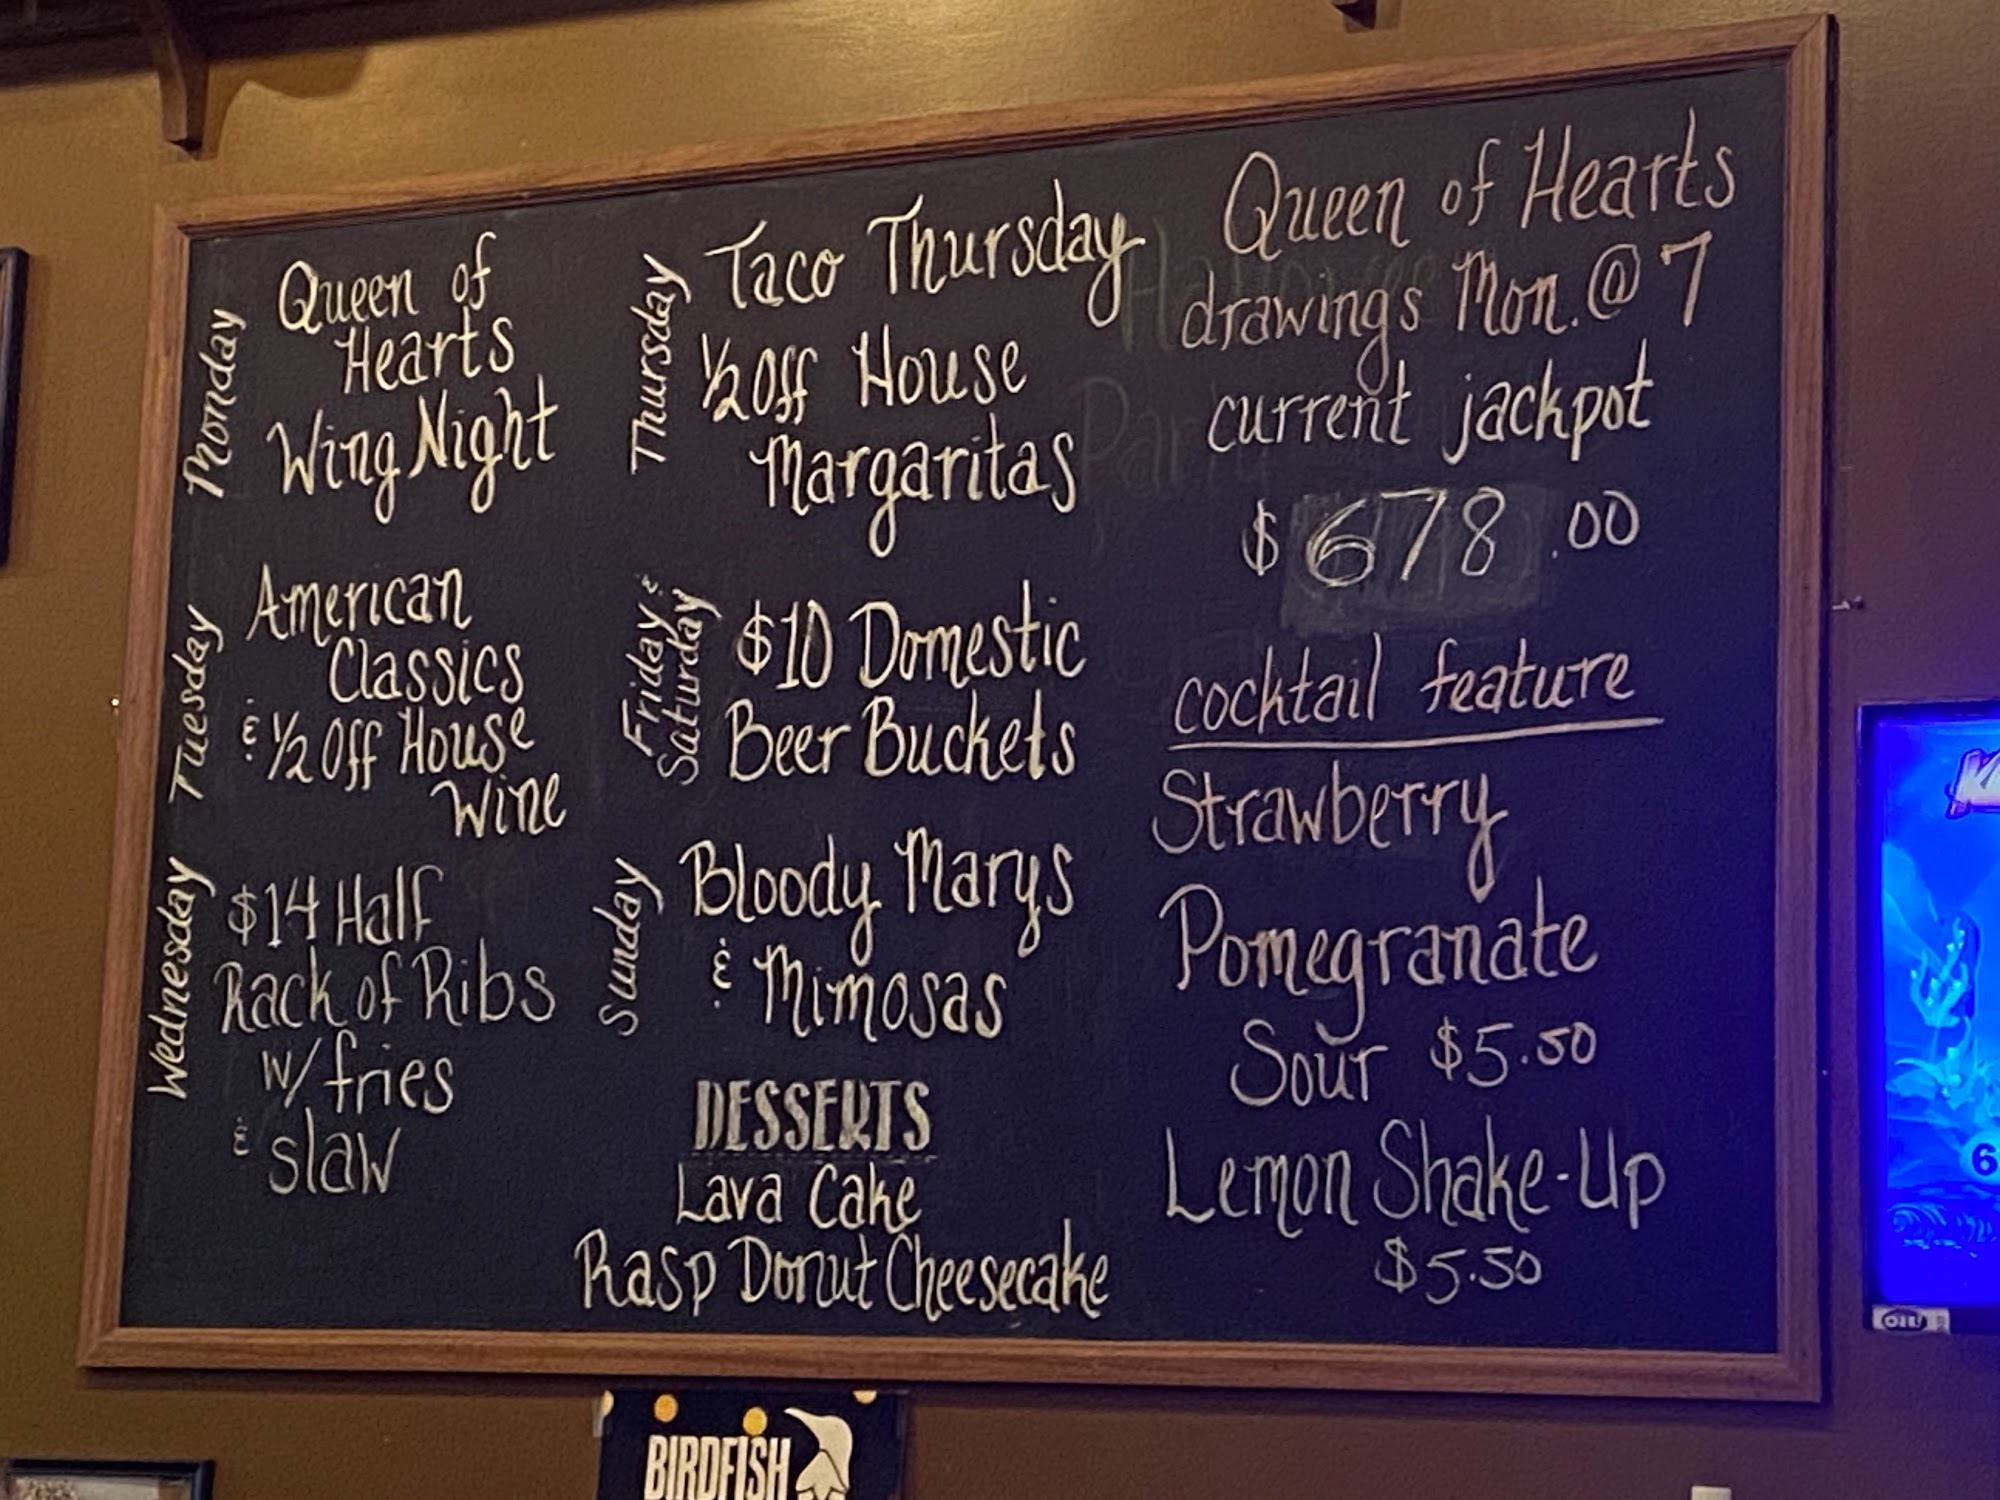 Monday
Queen of
Hearts
Wing Night
Tuesday
American
Classics
& 1/2 Off House
Wine
Wednesday
$14 Half
Rack of Ribs
w/ fries
& slaw
Thursday
Taco Thursday
1/2 Off House
Margaritas
Friday &
Saturday
$10 Domestic
Beer Buckets
Sunday
Bloody Marys
& Mimosas
DESSERTS
Lava Cake
Rasp Donut Cheesecake
Queen of Hearts
drawings Mon. @ 7
current jackpot
$678.00
cocktail feature
Strawberry
Pomegranate
Sour $5.50
Lemon Shake-Up
$5.50
BIRDFISH